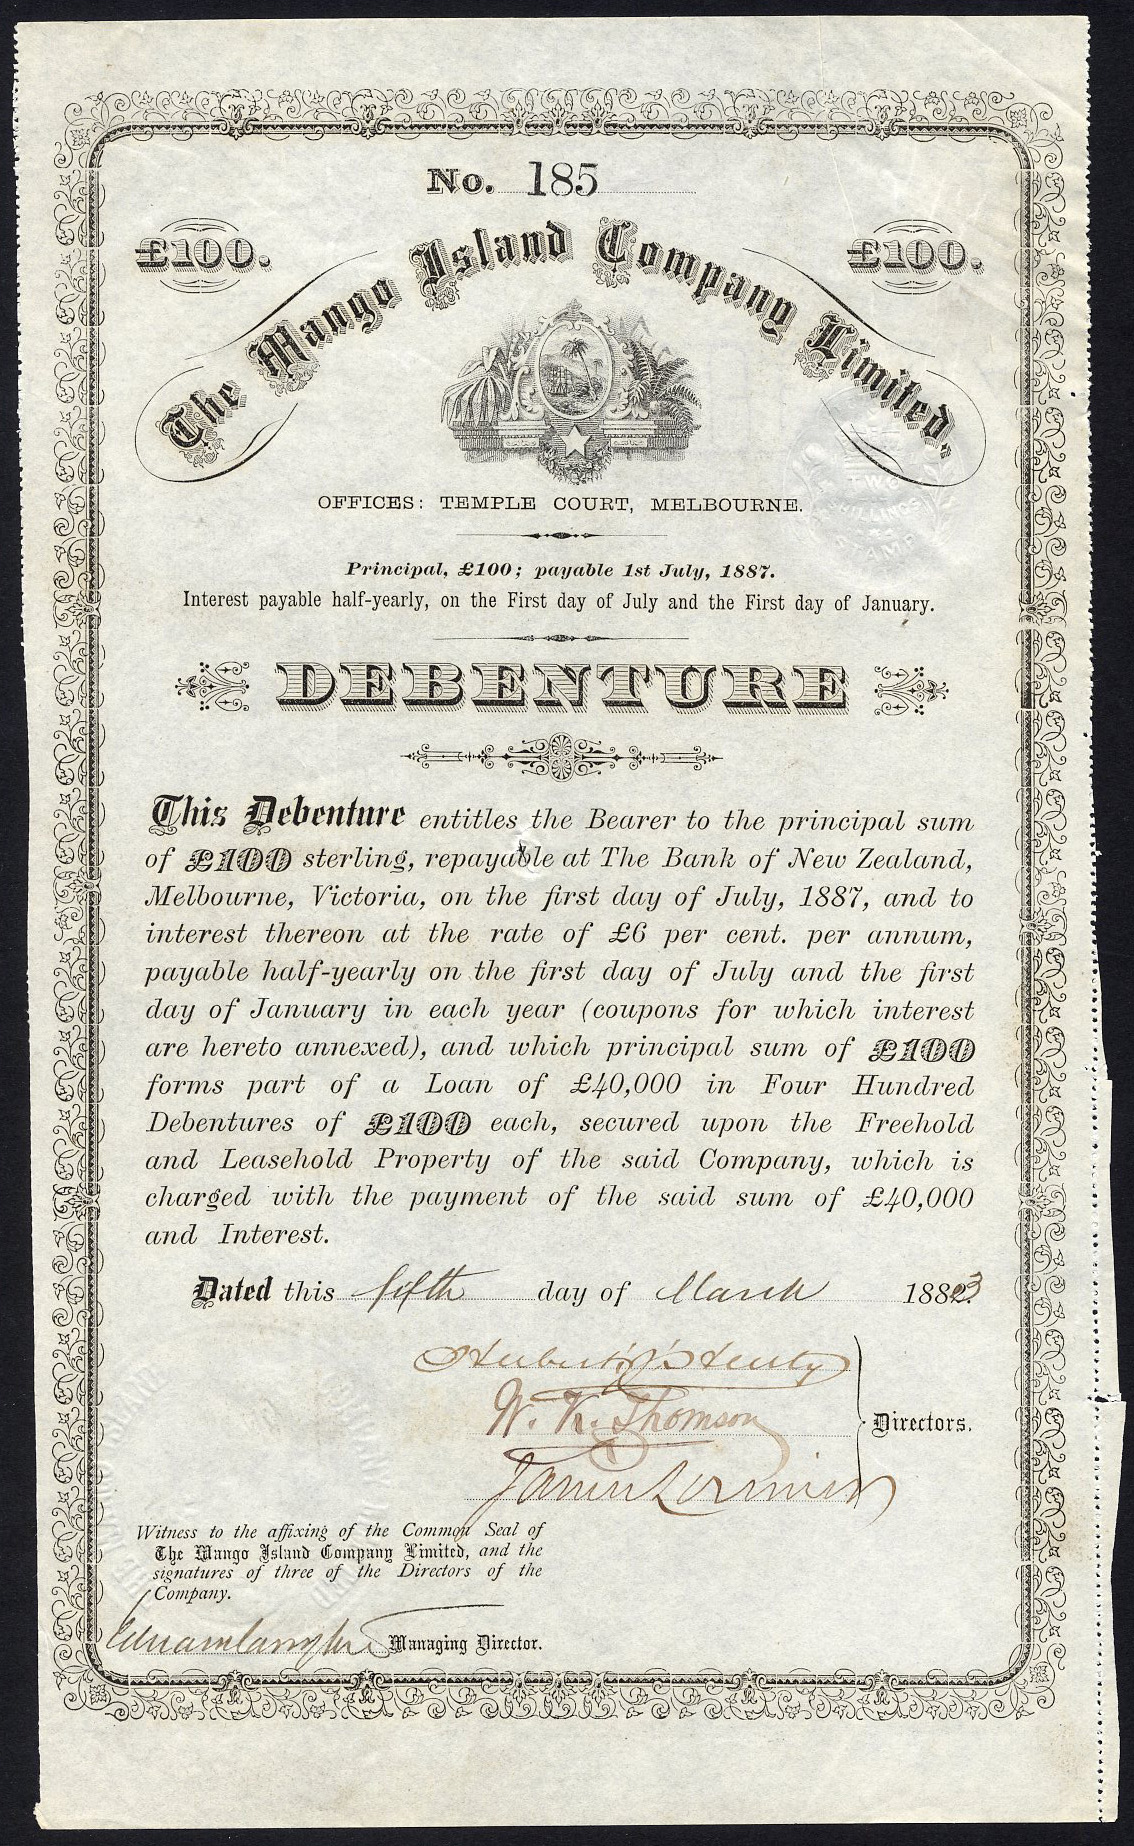 No. 185
£100. £100.
The Mango Island Company Limited,
OFFICES: TEMPLE COURT, MELBOURNE.
TWO
SHILLINGS
STAMP
Principal, £100; payable 1st July, 1887.
Interest payable half-yearly, on the First day of July and the First day of January.
DEBENTURE
This Debenture entitles the Bearer to the principal sum
of £100 sterling, repayable at The Bank of New Zealand,
Melbourne, Victoria, on the first day of July, 1887, and to
interest thereon at the rate of £6 per cent. per annum,
payable half-yearly on the first day of July and the first
day of January in each year (coupons for which interest
are hereto annexed), and which principal sum of £100
forms part of a Loan of £40,000 in Four Hundred
Debentures of £100 each, secured upon the Freehold
and Leasehold Property of the said Company, which is
charged with the payment of the said sum of £40,000
and Interest.
Dated this fifth day of March 1883
Herbert J. Henty
W. K. Thomson
James
Directors.
Witness to the affixing of the Common Seal of
The Mango Island Company Limited, and the
signatures of three of the Directors of the
Company.
Managing Director.